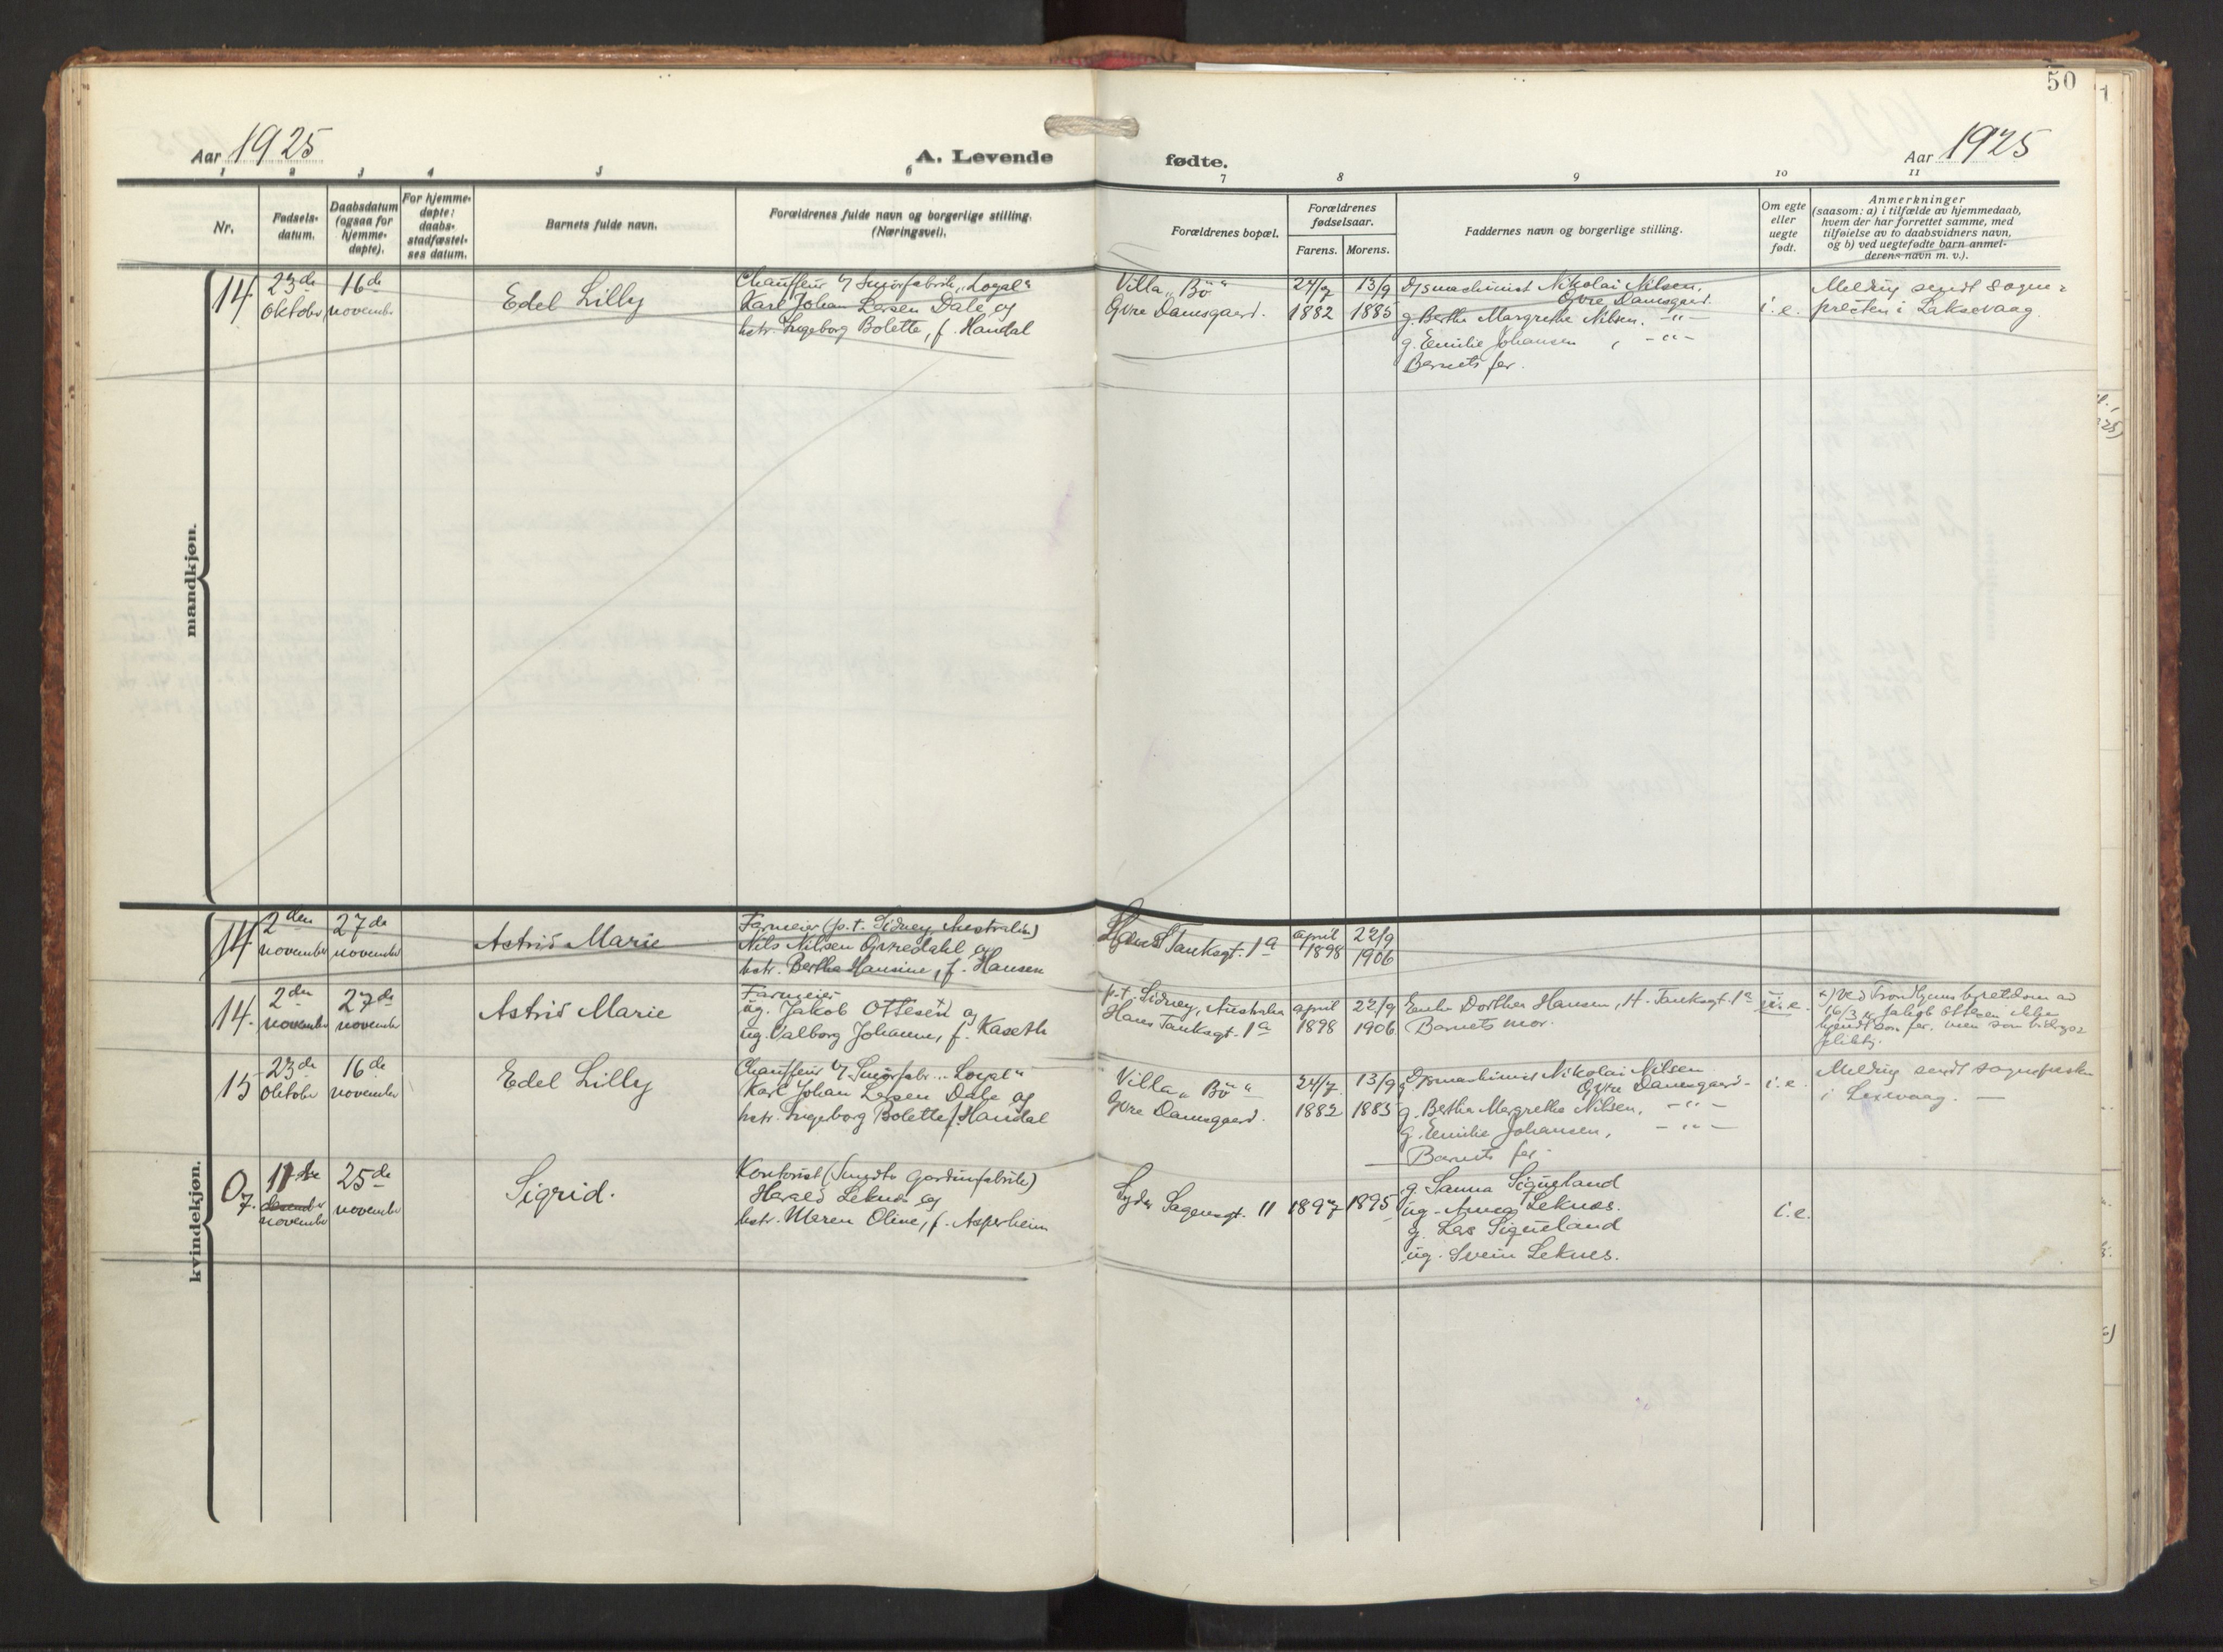 50
Aar 1925
A. Levende
fødte.
Aar 1925
1 2 3 4 5 6 7 8 9 10 11
Nr.
Fødsels-
datum.
Daabsdatum
(ogsaa for
hjemme-
døpte).
For hjemme-
døpte:
daabs-
stadfæstel-
ses datum.
Barnets fulde navn.
Forældrenes fulde navn og borgerlige stilling.
(Næringsvei).
Forældrenes bopæl.
Forældrenes
fødselsaar.
Farens. Morens.
Faddernes navn og borgerlige stilling.
Om egte
eller
uegte
født.
Anmerkninger
(saasom: a) i tilfælde av hjemmedaab,
hvem der har forrettet samme, med
tilføielse av to daabsvidners navn,
og b) ved uegtefødte barn anmel-
derens navn m. v.).
mandkjøn.
14. 23de oktober, 16de november
Edel Lilly
Chauffeur v/ Smørfabrik „Loyal“
Karl Johan Larsen Dale og
hstr. Ingeborg Bolette, f. Handal
Villa „Bö“
Øvre Damsgaard.
24/7 1882
13/9 1885
Nikolai Nilsen,
Øvre Damsgaard.
g. Berthe Margrethe Nilsen. -"-
g. Emilie Johansen, -"-
Barnets far.
i. e.
Melding sendt sogne-
presten i Laksevaag.
kvindekjøn.
14 2den november 27de november
Astrid Marie
Farmeier (p.t. Sidney, Australien)
Nils Nilsen Øvredahl og
hstr. Berthe Hansine, f. Hansen
Hans Tanksgt. 1a
april 1898
22/9 1906
14. 2den november 27de november
Astrid Marie
Farmeier
ug. Jakob Ottesen +) og
ug. Valborg Johanne, f. Kaseth
p.t. Sidney, Australia
Hans Tanksgt. 1a
april 1898
22/9 1906
Enke Dorthea Hansen, H. Tanksgt. 1a
Barnets mor.
u. e.
+) Ved Trondhjems byretdom av
16/3 Jakob Ottesen ikke
kjendt som far, men som bidrags-
pliktig.
15 23de oktober 16de november
Edel Lilly
Chauffeur v/ Smørfabr. „Loyal“
Karl Johan Larsen Dale og
hstr. Ingeborg Bolette f. Handal
Villa „Bö“
Øvre Damsgaard.
24/7 1882
13/9 1885
Nikolai Nilsen
Øvre Damsgaard-
g. Berthe Margrethe Nilsen, -"-
g. Emilie Johansen, -"-
Barnets far.
i. e.
Melding sendt sognepresten
i Laxevaag. —
0 7. 11de november 25de november
Sigrid.
Kontorist (Smedts Gardinfabrik)
Harald Leknes og
hstr. Maren Oline, f. Asperheim
Lyder Sagensgt. 11
1897
1895
g. Sanna Sigueland
ug. Anna Leknes.
g. Lars Sigueland
ug. Svein Leknes.
i. e.